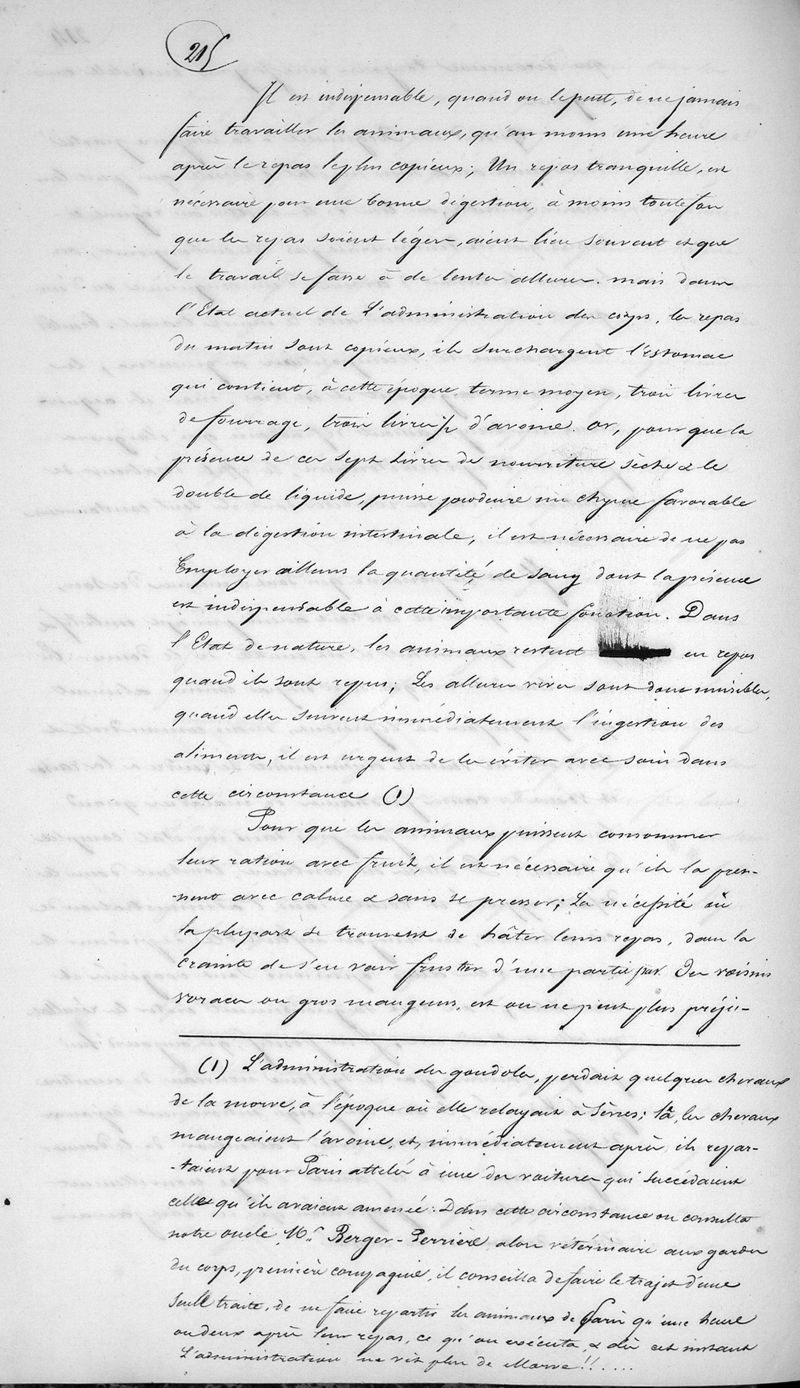 215
Il est indispensable, quand on le peut, de ne jamais
faire travailler les animaux, qu'au moins une heure
après le repas le plus copieux; Un repos tranquille, est
nécessaire pour une bonne digestion, à moins toutefois
que les repas soient légers, aient lieu souvent et que
le travail se fasse à de lentes allures. mais dans
l'Etat actuel de L'administration des corps, les repas
du matin sont copieux, ils surchargent l'estomac
qui contient, à cette époque, terme moyen, trois livres
de fourrage, trois livres ½ d'avoine. or, pour que la
présence de ces sept livres de nourriture sèche & le
double de liquide, puisse produire un chyme favorable
à la digestion intestinale, il est nécessaire de ne pas
Employer ailleurs la quantité de sang dont la présence
est indispensable à cette importante fonction. Dans
l'Etat de nature, les animaux restent en repos
quand ils sont repus; Les allures vives sont donc nuisibles,
quand elles suivent immédiatement l'ingestion des
aliments, il est urgent de les éviter avec soin dans
cette circonstance (1)
Pour que les animaux puissent consommer
leur ration avec fruit, il est nécessaire qu'ils la pren-
nent avec calme & sans se presser; La nécessité où
la plupart se trouvent de hâter leurs repas, dans la
crainte de s'en voir frustrer d'une partie par des voisins
voraces ou gros mangeurs, est on ne peut plus préju-
(1) L'administration des gondoles, perdait quelques chevaux
de la morve, à l'époque où elle relayait à Sèvres; là, les chevaux
mangeaient l'avoine, et, immédiatement après, ils repar-
taient pour Paris attelés à une des voitures qui succédaient
celle qu'ils avaient amenée. Dans cette circonstance on consulta
notre oncle, Mr. Berger-Perrière, alors vétérinaire aux gardes
du corps, première compagnie, il conseilla de faire le trajet d'une
seule traite, de ne faire repartir les animaux de Paris qu'une heure
ou deux après leur repas, ce qu'on exécuta, & dès cet instant
L'administration ne vit plus de Morve!!.....